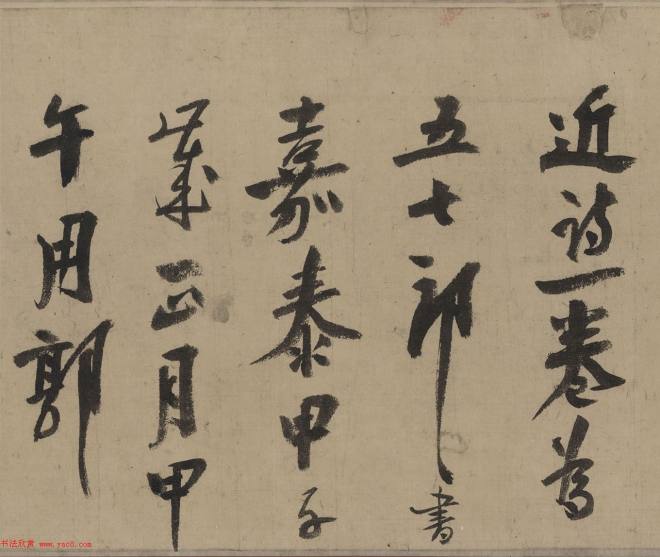 近诗一卷为
五七郎书
嘉泰甲子
岁正月甲
午用郭
书法欣赏 www.yac8.com